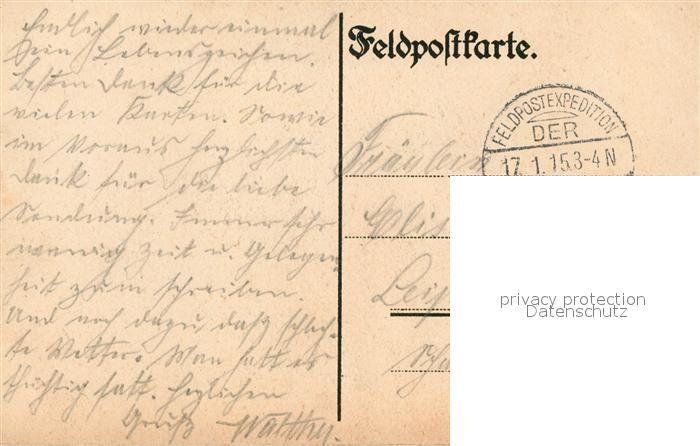 Endlich wieder einmal
Dein Lebenszeichen.
Besten Dank für die
vielen Karten. Sowie
im Voraus herzlichsten
Dank für die liebe
Sendung. Immer sehr
wenig Zeit u. Gelegen-
heit zum schreiben.
Und noch dazu daß schlech-
te Wetter. Man hatt es
tüchtig satt. Herzlichen
Gruß Walther.
Feldpostkarte.
FELDPOSTEXPEDITION
DER
17.1.15 3-4 N
Fräulein
privacy protection
Datenschutz